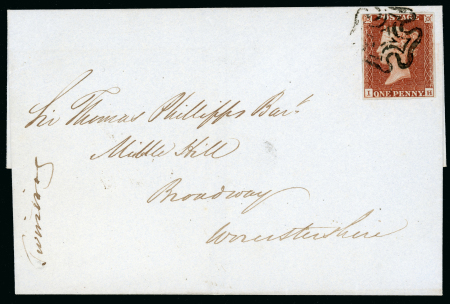 POSTAGE
I H
ONE PENNY
Sir Thomas Phillipps Bart
Middle Hill
Broadway
Worcestershire